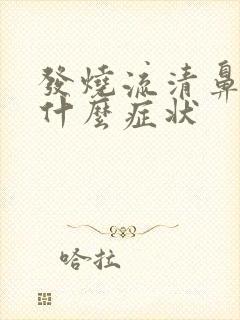 發燒流清鼻
什麼症狀
哈拉